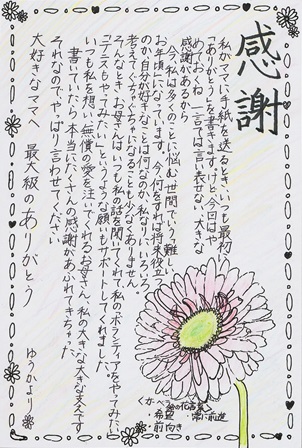 感謝
私がママに手紙を送るとき、いつも最初に
「ありがとう」を書きますけど、今回はや
めておくね。一言では言い表せない大きな
感謝があるから。
今、私は多くのことに悩む、世間でいう"難しい
お年頃"になっています。今、何をすれば将来役立つ
のか、自分が好きなことは何なのか、私なりにいろいろ
考えてぐちゃぐちゃになることも少なくありません。
そんなとき、お母さんはいつも私の話を聞いてくれて、私の「ボランティアをやってみたい」
「テニスもやってみたい」というような願いもサポートしてくれました。
いつも私を想い、無償の愛を注いでくれるお母さん、私の大きな大きな支えです。
書いていたら、本当にたくさんの感謝があふれてきちゃった。
それなので、やっぱり言わせてください。
大好きなママへ 最大級のありがとう
ゆうかより
＜ガーベラの花言葉＞
・希望 ・常に前進
・前向き